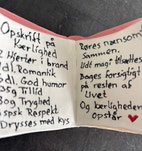 Opskrift på
Kærlighed
2 Hjerter i brand
2dl. Romantik
3dl. God humor
35g Tillid
Bog Tryghed
5 spsk Respekt
Drysses med kys
Røres nænsomt
Sammen.
Udt magt tilsættes
Bages forsigtigt
på resten af
livet
Og kærligheden
opstår